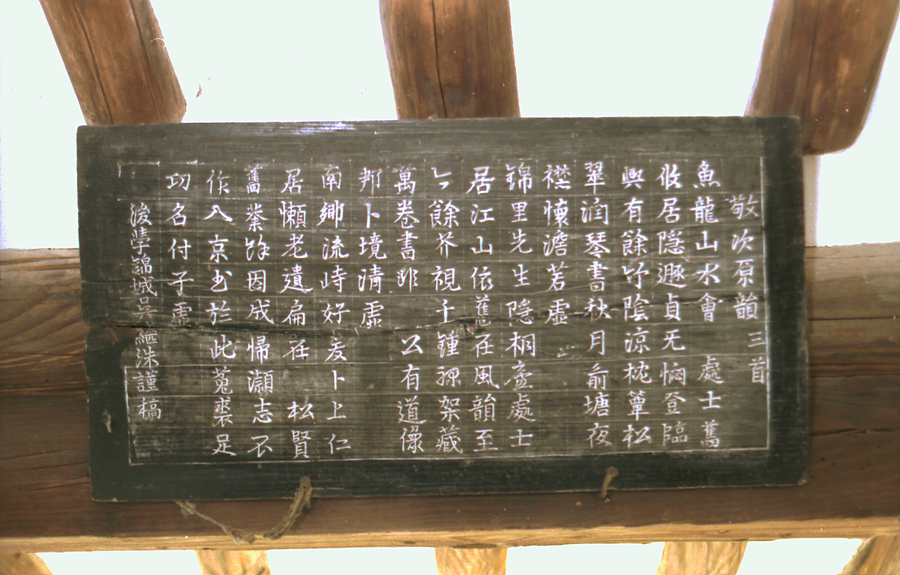 敬次原韻三首
魚龍山水會 處士舊
攸居隱遯貞无悶登臨
興有餘竹陰涼枕簟松
翠潤琴書秋月前塘夜
襟懷澹若虛
錦里先生隱桐處士
居江山依舊在風韻至
今餘芥視千鍾祿架藏
萬卷書 公有道
邦卜境清虛
南鄉流峙好爰卜上仁
居懶老遺扁在 松賢
舊業餘因成歸灝志不
作入京書於此菟裘足
功名付子虛
後學錦城吳洙謹稿